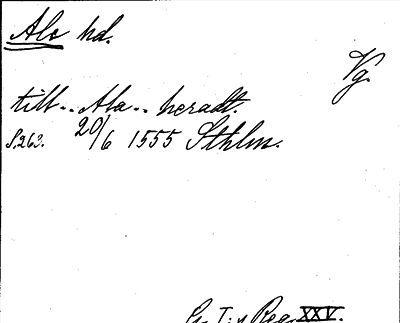 Ale hd.
Vg.
till.. Ala.. heradt.
S.263. 20/6 1555 Sthlm.
G. I:s Reg. XXV.